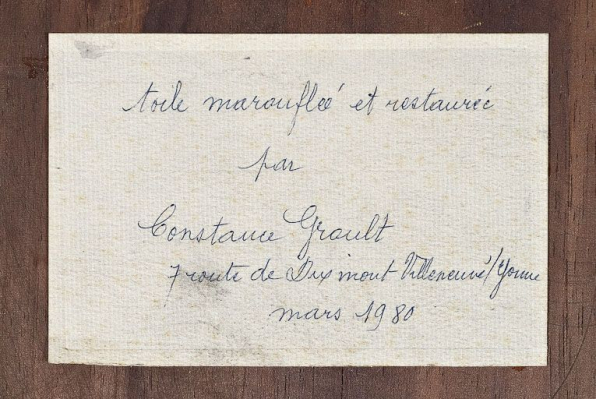 toile marouflée et restaurée
par
Constance Groult
7 route de Dixmont Villeneuve/Yonne
mars 1980